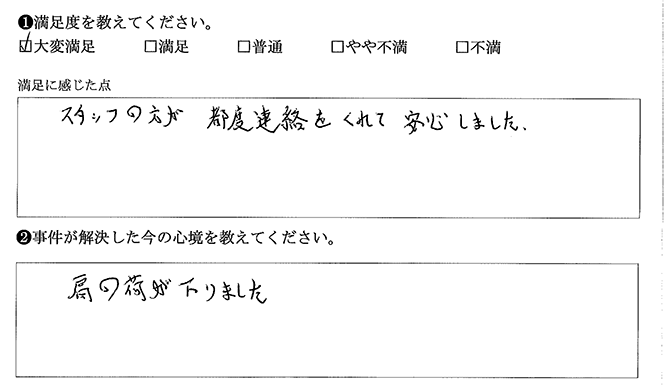 ❶満足度を教えてください。
☑大変満足 □満足 □普通 □やや不満 □不満
満足に感じた点
スタッフの方が 都度連絡をくれて 安心しました.
❷事件が解決した今の心境を教えてください。
肩の荷が下りました